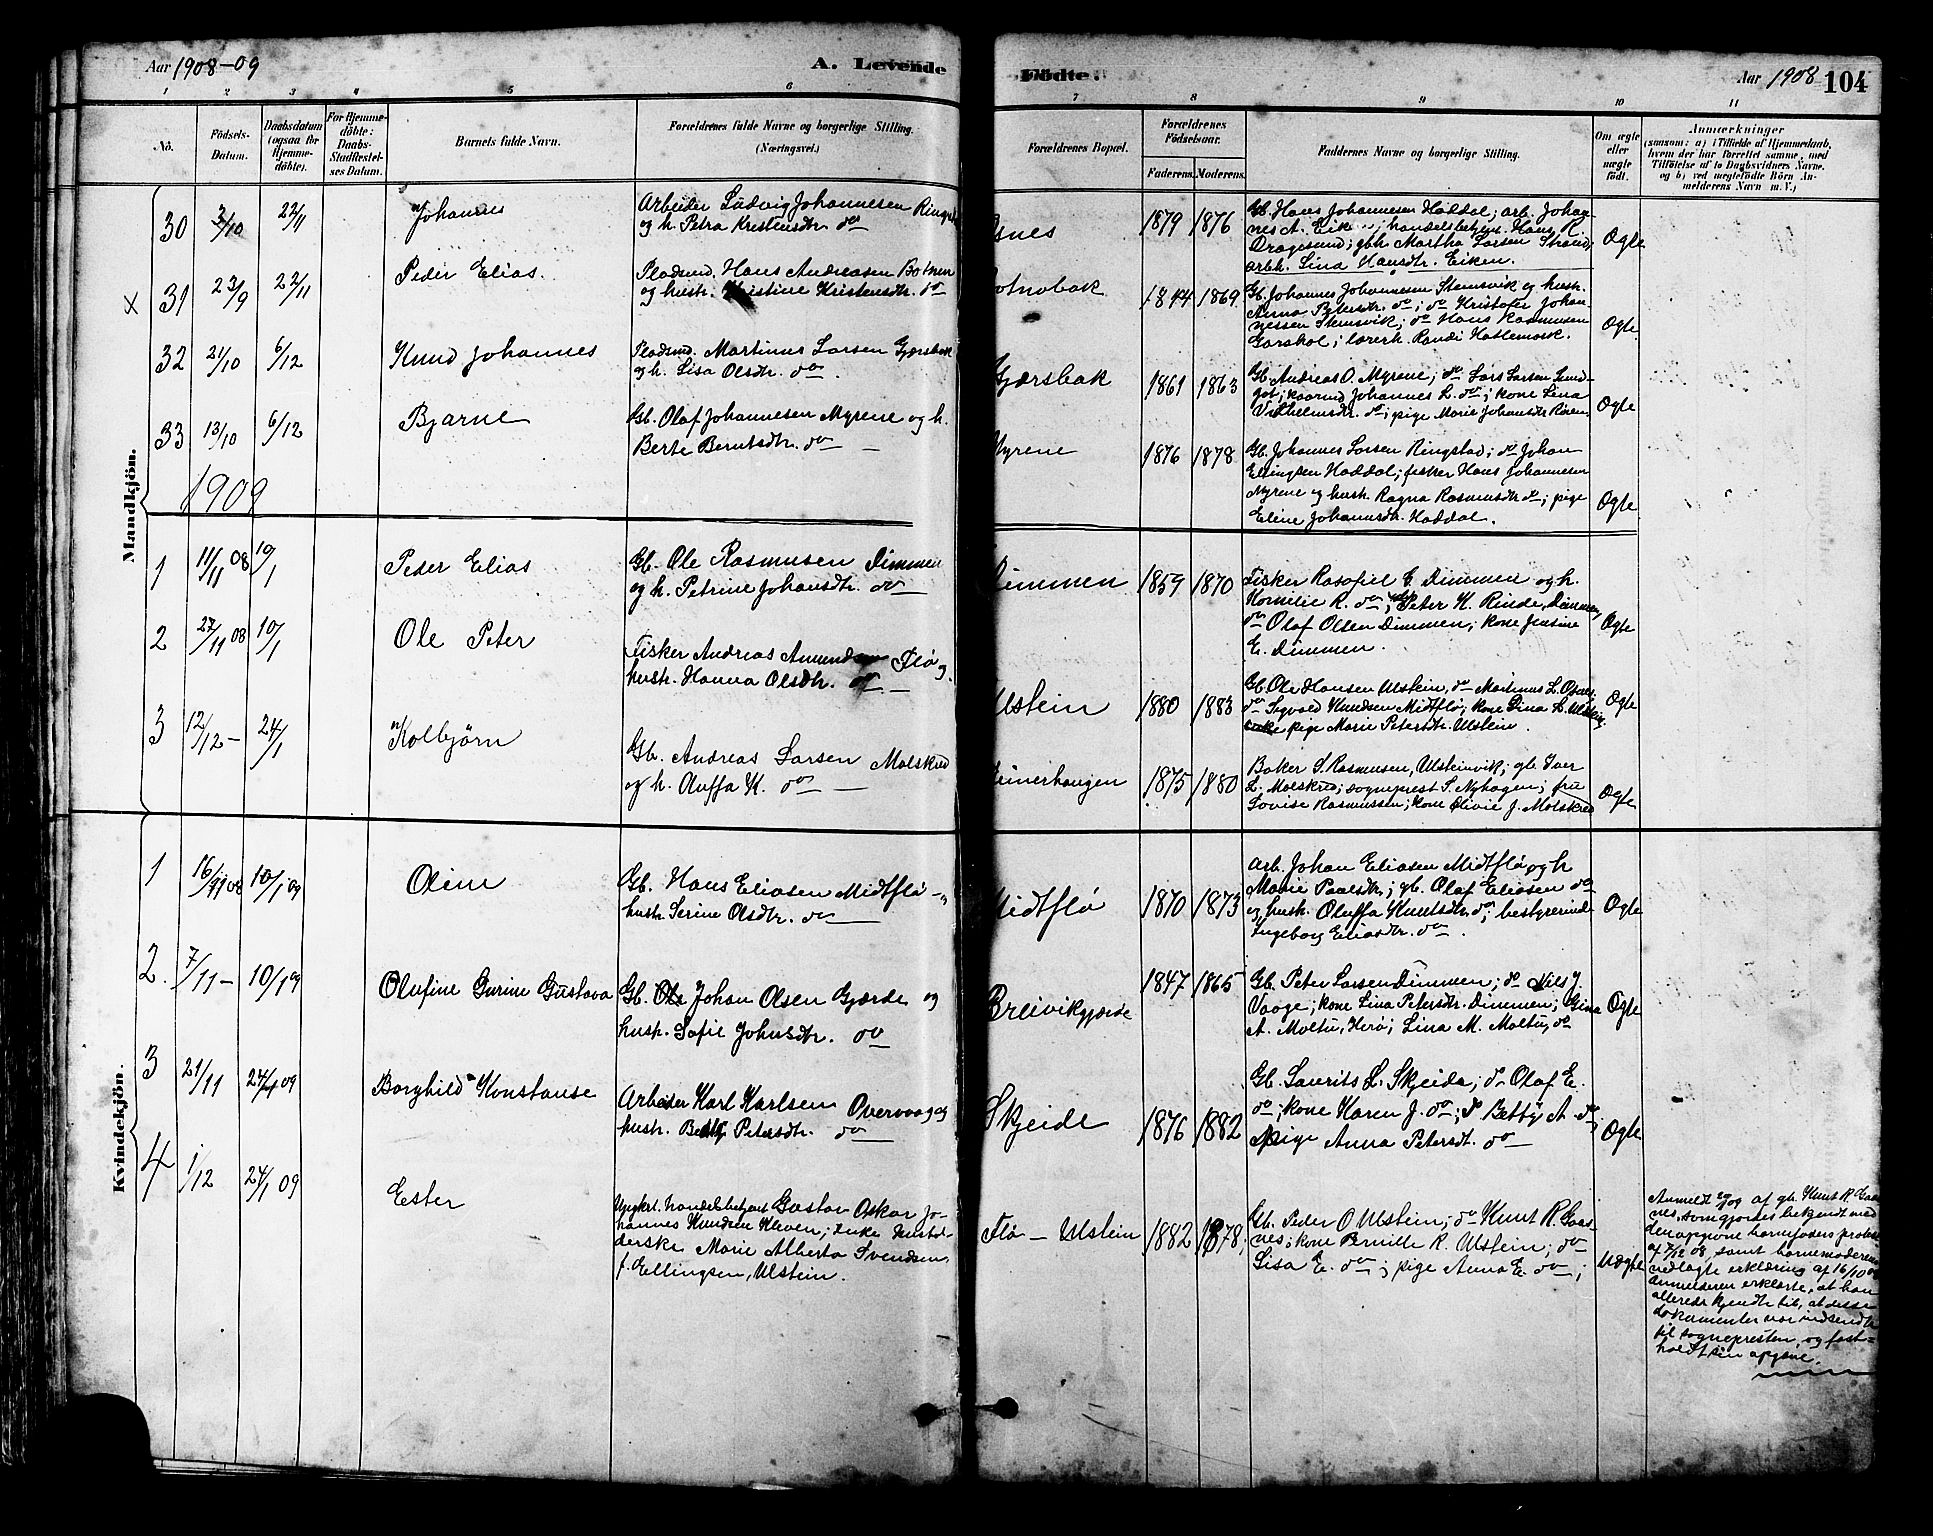 Aar 1908-09
A. Levende
Födte.
Aar 1908
104
1 2 3 4 5 6 7 8 9 10 11
No.
Födsels-
Datum.
Daabsdatum
(ogsaa for
Hjemme-
döbte).
For Hjemme-
döbte:
Daabs-
Stadfæstel-
ses Datum.
Barnets fulde Navn.
Forældrenes fulde Navne og borgerlige Stilling.
(Næringsvei.)
Forældrenes Bopæl.
Forældrenes
Födselsaar.
Faderens. Moderens.
Faddernes Navne og borgerlige Stilling.
Om ægte
eller
uægte
födt.
Anmærkninger
(saasom: a) i Tilfælde af Hjemmedaab,
hvem der har forrettet samme, med
Tilföielse af to Daabsvidners Navne,
og b) ved uægtefödte Börn An-
melderens Navn m. V.)
Mandkjön.
30 3/10 22/11
Johannes
Arbeider Ludvig Johannesen
og h. Petra Kristensdtr. do
snes
1879 1876
Gb. Hans Johannesen Haddal; arb. Johan-
nes A. Eik; handelsbetjen. Hans K.
Dragesund; gbh. Martha Larsen Strand;
arbh. Lina Hansdtr. Eiken.
Ægte
x 31 23/9 22/11
Peder Elias.
Pladsmd. Hans Andreasen Botnen
og hustr. Kristine Kristensdtr. do
otnobak
1844 1869
Gb. Johannes Johannesen Stemsvik og hustr.
Anna Petersdtr. do; do Kristofer Johan-
nessen Stemsvik; do Hans Rasmussen
Garshol; lærerh. Randi Hatlemark.
Ægte
32 21/10 6/12
Knud Johannes
Pladsmd. Martinus Larsen Gjærsbak
og h. Lisa Olsdtr. do.
Gjærsbak
1861 1863
Gb. Andreas O. Myrene; do Lars Larsen Lund-
got; kaarmd Johannes L. do; kone Lina
Vilhelmsdtr. do; pige Marie Johansdtr.
Ægte
33 13/10 6/12
Bjarne
Gb. Olaf Johannesen Myrene og h.
Berte Berntsdtr. do
Myrene
1876 1878
Gb. Johannes Larsen Ringstad; do Johan
Ellingsen Haddal; fisker Hans Johannesen
Myrene og hustr. Ragna Rasmusdtr do; pige
Eline Johannsdtr. Haddal.
Ægte
1909
1 11/11 08 10/1
Peder Elias
Gb. Ole Rasmusen Dimmen
og h. Petrine Johansdtr. do
Dimmen
1859 1870
Fisker Rasafiel E. Dimmen og h.
Kornelie R. do; Peter K. Rinde, Dimmen,
do Olaf Olsen Dimmen; kone Jensine
E. Dimmen.
Ægte
2 27/11 08 10/1
Ole Peter
Fisker Andreas Amundsen Flø og
hustr. Hanna Olsdtr. do
Ulstein
1880 1883
Gb. Ole Hansen Ulstein, do Martinus L. Osnes;
do Sigvald Knudsen Midtflø; kone Gina L. Ulstein;
pige Marie Petersdtr. Ulstein.
Ægte
3 12/12 - 24/1
Kolbjørn
Gb. Andreas Larsen Molskred
og h. Oluffa K. do
1875 1880
Baker S. Rasmusen, Ulsteinvik; gb. Iver
L. Molskred; sogneprest S. Nyhagen; fru
Lovise Rasmussen; kone Olivie J. Molskred
Ægte
Kvindekjön.
1 16/11 08 10/1 09
Oline
Gb. Hans Eliasen Midtflø og
hustr. Serine Olsdtr. do
Midtflø
1870 1873
Arb. Johan Eliasen Midtflø og h
Marie Paalsdtr.; gb. Olaf Eliasen do
og hustr. Oluffa Knutsdtr. do; bestyrerinde
Ingeborg Eliasdtr. do.
Ægte
2. 7/11 - 10/1 09
Olufine Gurine Gustava
Gb. Johan Olsen Gjærde og
hustr. Sofie Johnsdtr. do
Breivikgjærde
1847 1865
Gb. Peter Larsen Dimmen; do Nils J.
Vaage; kone Lina Petersdtr. Dimmen; Gina
A. Moltu, Herø; Lina M. Moltu, do
Ægte
3 21/11 24/1 09
Borghild Konstanse
Arbeider Karl Karlsen Overvaag og
hustr. Betty Petersdtr. do
Skjeide
1876 1882
Gb. Laurits L. Skjeide; do Olaf E.
do; kone Karen J. do; do Betty A. do;
pige Anna Petersdt. do
Ægte
4 1/12 24/1 09
Ester
Ugift. handelsbetjent Gustav Oskar Jo-
hannes Knudsen Kleven; Enke
Marie Alberta Svendsen
f. Ellingsen, Ulstein.
Flø - Ulstein
1882 1878;
Gb. Peder O Ulstein; do Knut R. Gaas-
nes; kone Bernille R. Ulstein; do
Lisa E. do; pige Anna E. do;
Uægte
Anmeldt af gb. Knut R. Gaas-
nes, som gjordes bekjendt med
den opgivne barnefaders protest
af 7/12 08, samt barnemoderens
vedlagte erklæring af 16/10
Anmelderen erklærte, at han
allerede kjendte til, at disse
dokumenter var indsendt
til sognepresten, og fast-
holdt sin opgave.